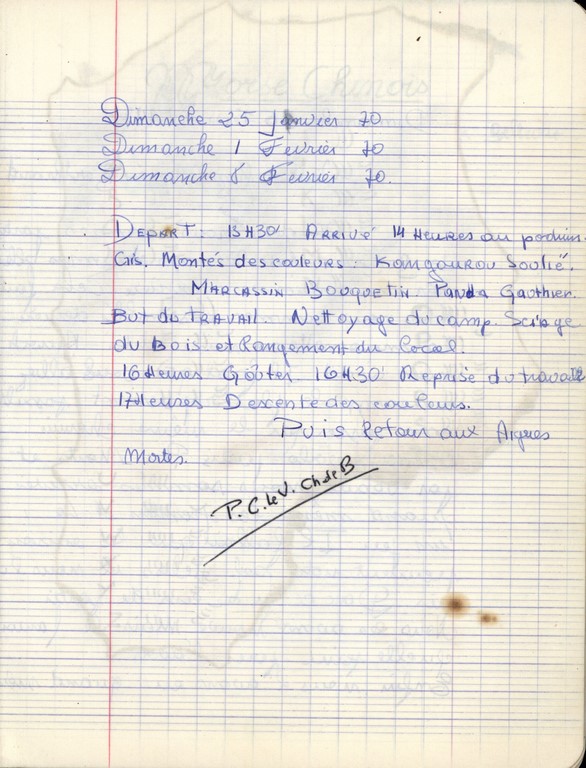 Dimanche 25 Janvier 70
Dimanche 1 Fevrier 70
Dimanche 8 Fevrier 70.
DEPART: 13H30' ARRIVÉ 14 Heures au
Gis. Montés des couleurs: Kangourou Soulié.
MARCASSIN BOUQUETIN. Panda Gauthier.
BUT du TRAVAIL. Nettoyage du camp. Sciage
du Bois et Rangement du local.
16 Heures Goûter. 16H30' Reprise du travail
17 Heures Descente des couleurs.
Puis Retour aux Aigues
Mortes.
P.C. le V. Ch de B